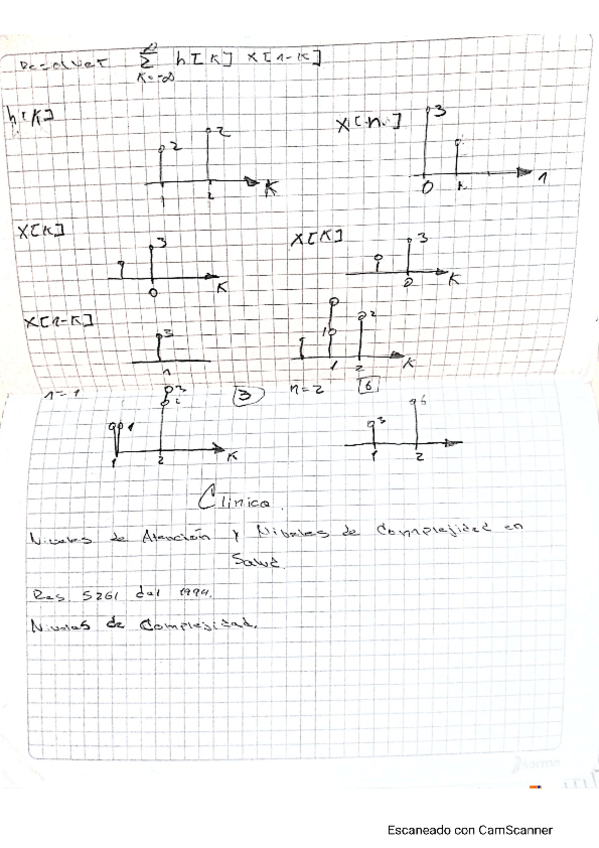 Resolver ∞ Σ K=-∞ h[K] x[n-K]
h[K]
2 2
1 2 K
X[n]
3
0 n
X[K]
3
0 K
X[K]
3
0 K
X[n-K]
3
n
10 2
1 2 K
n=1 3
3
1
1 2 K
n=2 6
3 6
1 2
Clinica.
Niveles de Atención y Niveles de Complejidad en
Salud.
Res. 5261 del 1994.
Niveles de Complejidad.
norma
Escaneado con CamScanner